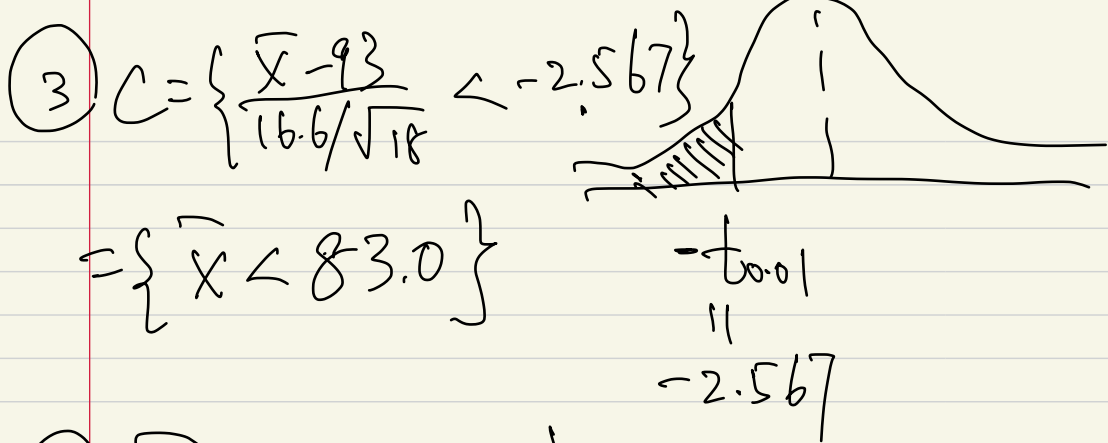 ③ C = { (x̄ - 93) / (16.6/√18) < -2.567 }
= { x̄ < 83.0 }
-t0.01
=
-2.567